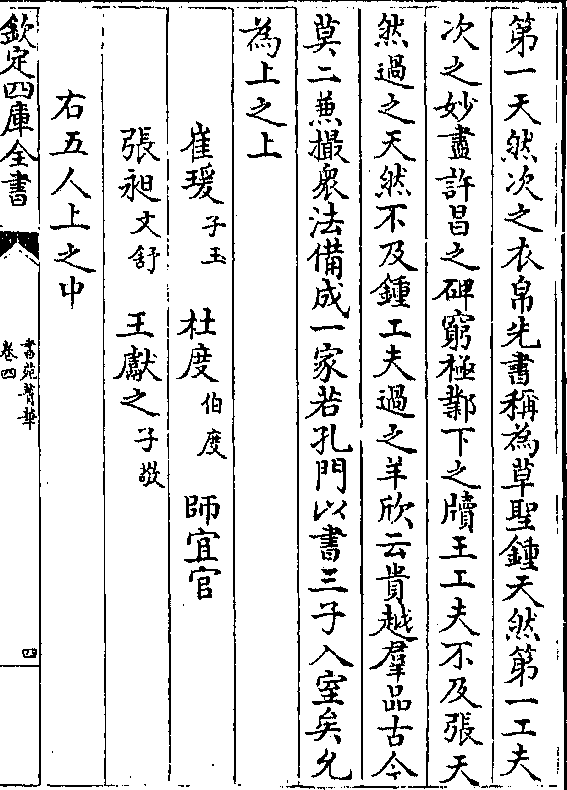 第一天然次之衣帛先書稱為草聖鍾天然第一工夫
次之妙盡許昌之碑窮極鄴下之牘王工夫不及張天
然過之天然不及鍾工夫過之羊欣云貴越羣品古今
莫二兼撮衆法備成一家若孔門以書三子入室矣允
為上之上
崔瑗子玉 杜度伯度 師宜官
張昶文舒 王獻之子敬
右五人上之中
欽定四庫全書
書苑菁華
卷四
四